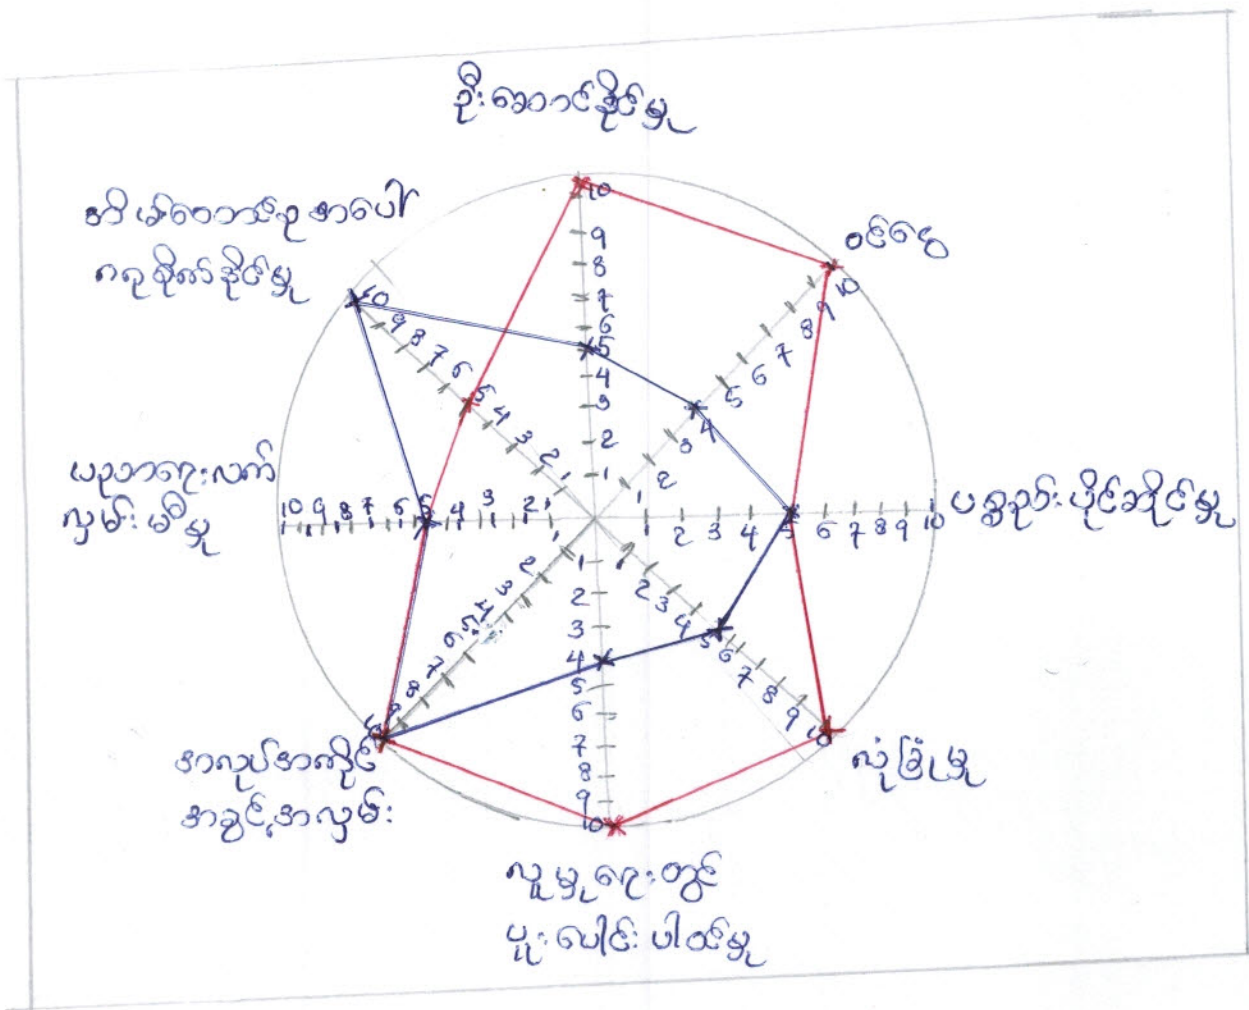 ဦးဆောင်နိုင်မှု
ဝင်ငွေ
ပစ္စည်းပိုင်ဆိုင်မှု
လုံခြုံမှု
လူမှုရေးတွင်
ပူးပေါင်းပါဝင်မှု
အလုပ်အကိုင်
အခွင့်အလမ်း
ပညာရေးလက်
လှမ်းမီမှု
ဂရုစိုက်နိုင်မှု
10
9
8
7
6
5
4
3
2
1
1
2
3
4
5
6
7
8
9
10
1
2
3
4
5
6
7
8
9
10
1
2
3
4
5
6
7
8
9
10
1
2
3
4
5
6
7
8
9
10
1
2
3
4
5
6
7
8
9
10
10
9
8
7
6
5
4
3
2
1
10
9
8
7
6
5
4
3
2
1